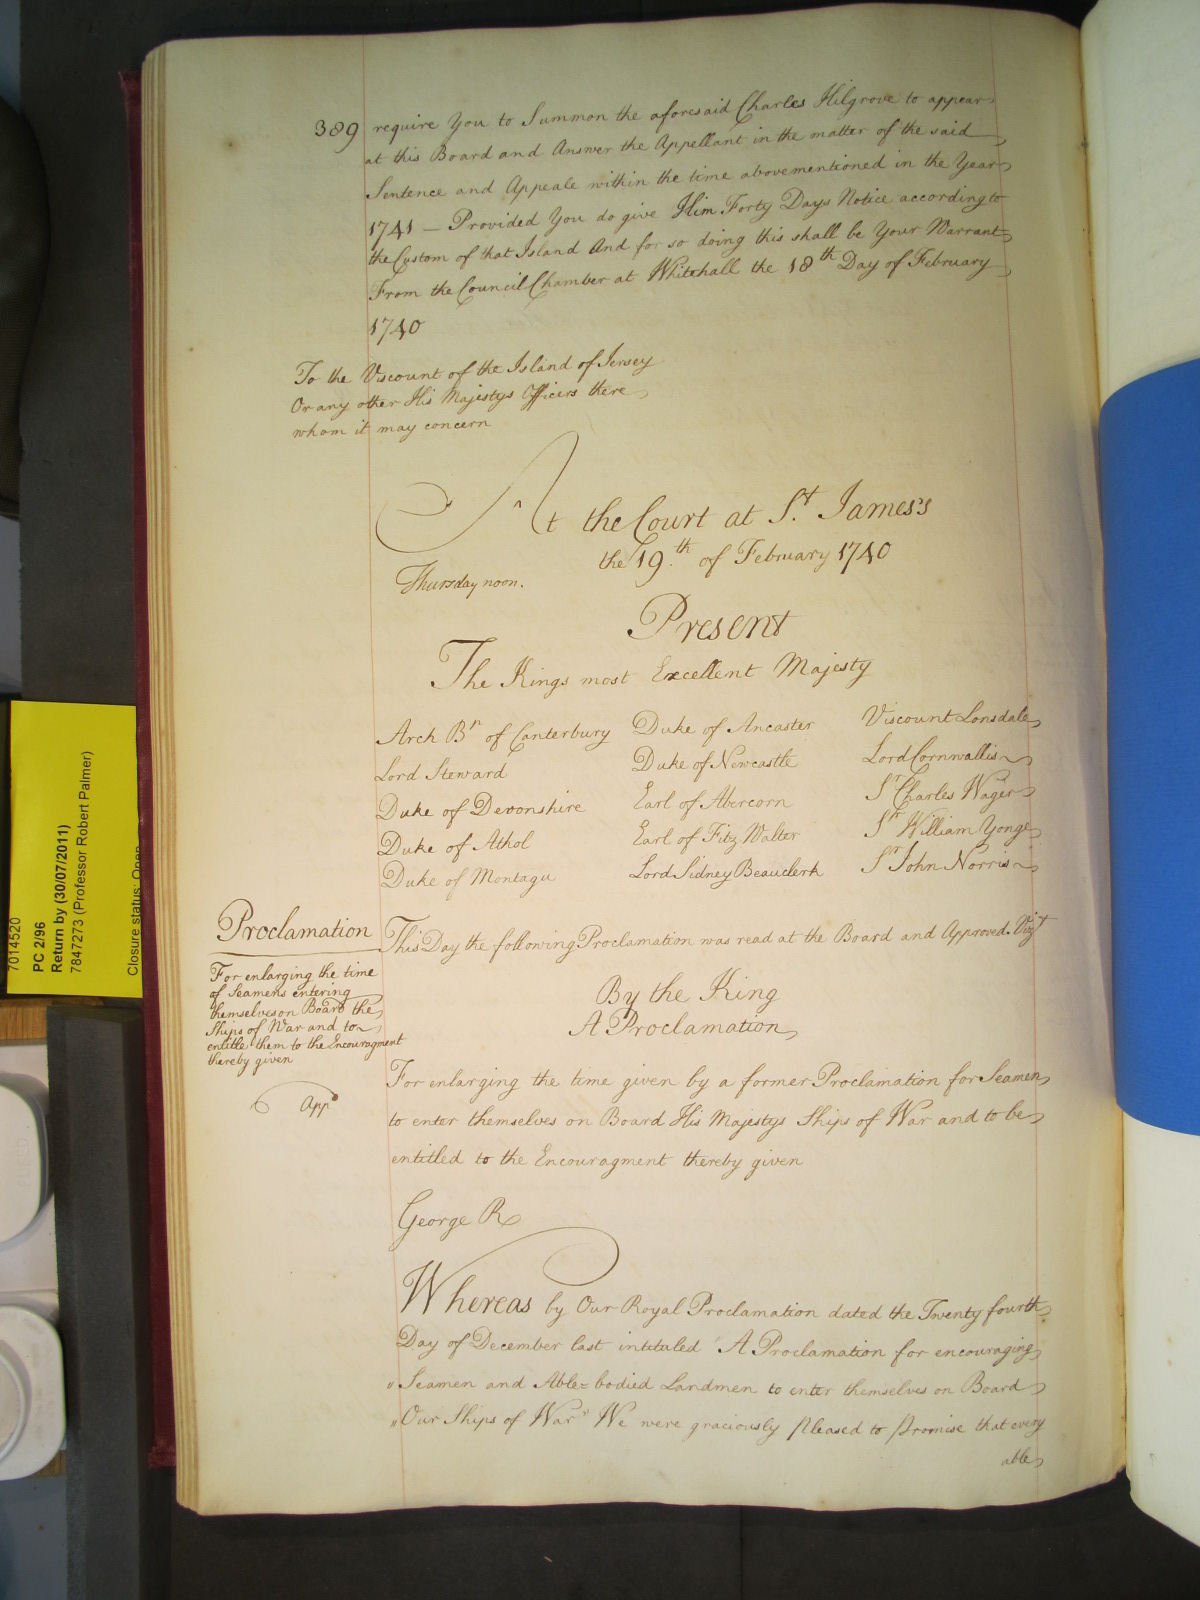 389 require You to Summon the aforesaid Charles Hilgrove to appear
at this Board and Answer the Appellant in the matter of the said
Sentence and Appeale within the time abovementioned in the Year
1741 — Provided You do give Him Forty Days Notice according to
the Custom of that Island And for so doing this shall be Your Warrant
From the Council Chamber at Whitehall the 18th Day of February
1740
To the Viscount of the Island of Jersey
Or any other His Majestys Officers there
whom it may concern
At the Court at St. James's
the 19th. of February 1740
Thursday noon.
Present
The Kings most Excellent Majesty
Arch Bp of Canterbury Duke of Ancaster Viscount Lonsdale
Lord Steward Duke of Newcastle Lord Cornwallis
Duke of Devonshire Earl of Abercorn Sr Charles Wager
Duke of Athol Earl of Fitz Walter Sr William Yonge
Duke of Montagu Lord Sidney Beauclerk Sr John Norris
Proclamation
For enlarging the time
of Seamens entering
themselves on Board the
Ships of War and to
entitle them to the Encouragment
thereby given
Appd
This Day the following Proclamation was read at the Board and Approved. Vizt
By the King
A Proclamation
For enlarging the time given by a former Proclamation for Seamen
to enter themselves on Board His Majestys Ships of War and to be
entitled to the Encouragment thereby given
George R
Whereas by Our Royal Proclamation dated the Twenty fourth
Day of December last intituled "A Proclamation for encouraging
"Seamen and Able=bodied Landmen to enter themselves on Board
"Our Ships of War" We were graciously pleased to promise that every
able
7014520
PC 2/96
Return by (30/07/2011)
7847273 (Professor Robert Palmer)
Closure status: Open